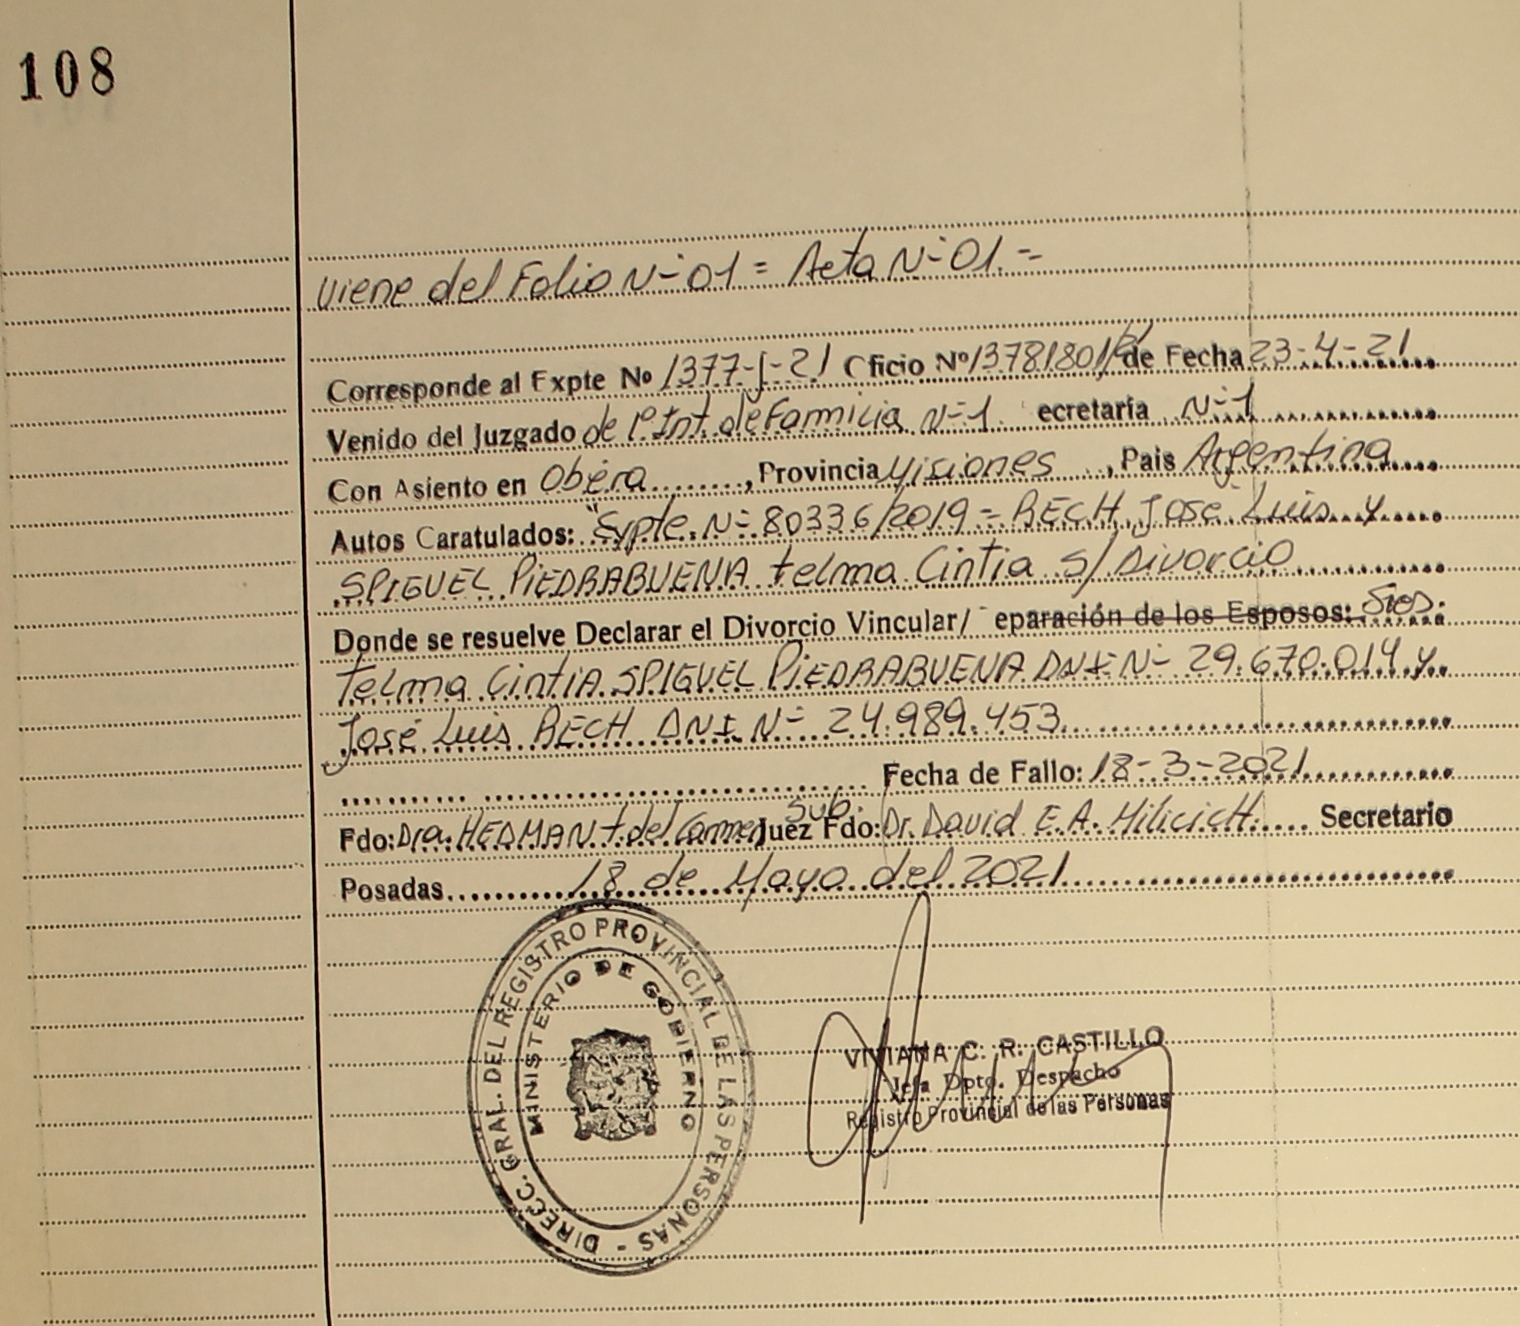 108
Viene del Folio N- 01 = Acta N- 01. -
Corresponde al Expte Nº 1377-J-21 Oficio Nº 13781801/21 de Fecha 23-4-21
Venido del Juzgado de 1º Int. de Familia N-1 ecretaria N-1
Con Asiento en Oberá, Provincia Misiones, Pais Argentina
Autos Caratulados: "Expte. N- 80336/2019 = RECH José Luis y
SPIGUEL PIEDRABUENA Telma Cintia S/ Divorcio
Donde se resuelve Declarar el Divorcio Vincular/ eparación de los Esposos: Sres.
Telma Cintia SPIGUEL PIEDRABUENA DNI N- 29.670.014 y
José Luis RECH DNI N- 24.989.453
Fecha de Fallo: 18-3-2021
Sub.
Fdo: Dra. HEDMAN del Carmen Juez Fdo: Dr. David E. A. Milicich Secretario
Posadas 18 de Mayo del 2021
DIRECC. GRAL. DEL REGISTRO PROVINCIAL DE LAS PERSONAS -
MINISTERIO DE GOBIERNO
VIVIANA C. R. CASTILLO
Jefa Dpto. Despacho
Registro Provincial de las Personas